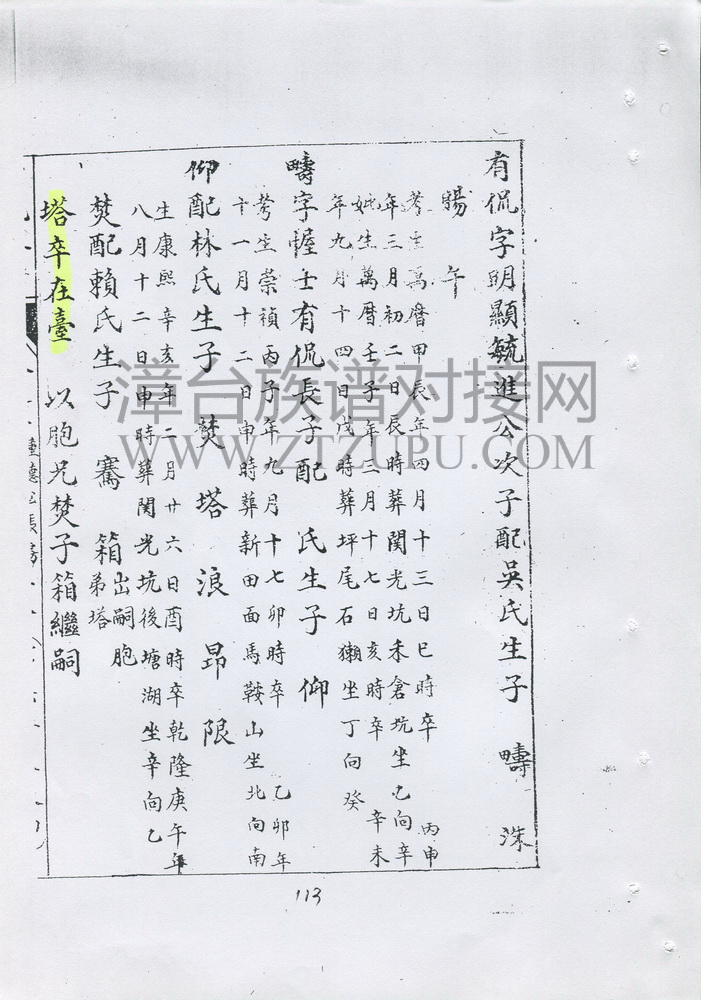 有侃字明顯毓進公次子配吳氏生子 疇 洙
暘 午
考生萬曆甲辰年四月十三日巳時卒 丙申
年三月初二日辰時葬関光坑禾倉坑坐乙向辛
妣生萬曆壬子年三月十七日亥時卒 辛未
年九月十四日戌時葬坪尾石獺坐丁向癸
疇字握士有侃長子配 氏生子 仰
考生崇禎丙子年九月十七卯時卒 乙卯年
十一月十二日申時葬新田面馬鞍山坐北向南
仰配林氏生子 焚 塔 浪 昂 限
生康熙辛亥年二月廿六日酉時卒乾隆庚午年
八月十二日申時葬関光坑後塘湖坐辛向乙
焚配賴氏生子 騫 箱 出嗣胞
弟塔
塔卒在臺 以胞兄焚子箱繼嗣
113
漳台族谱对接网
WWW.ZTZUPU.COM